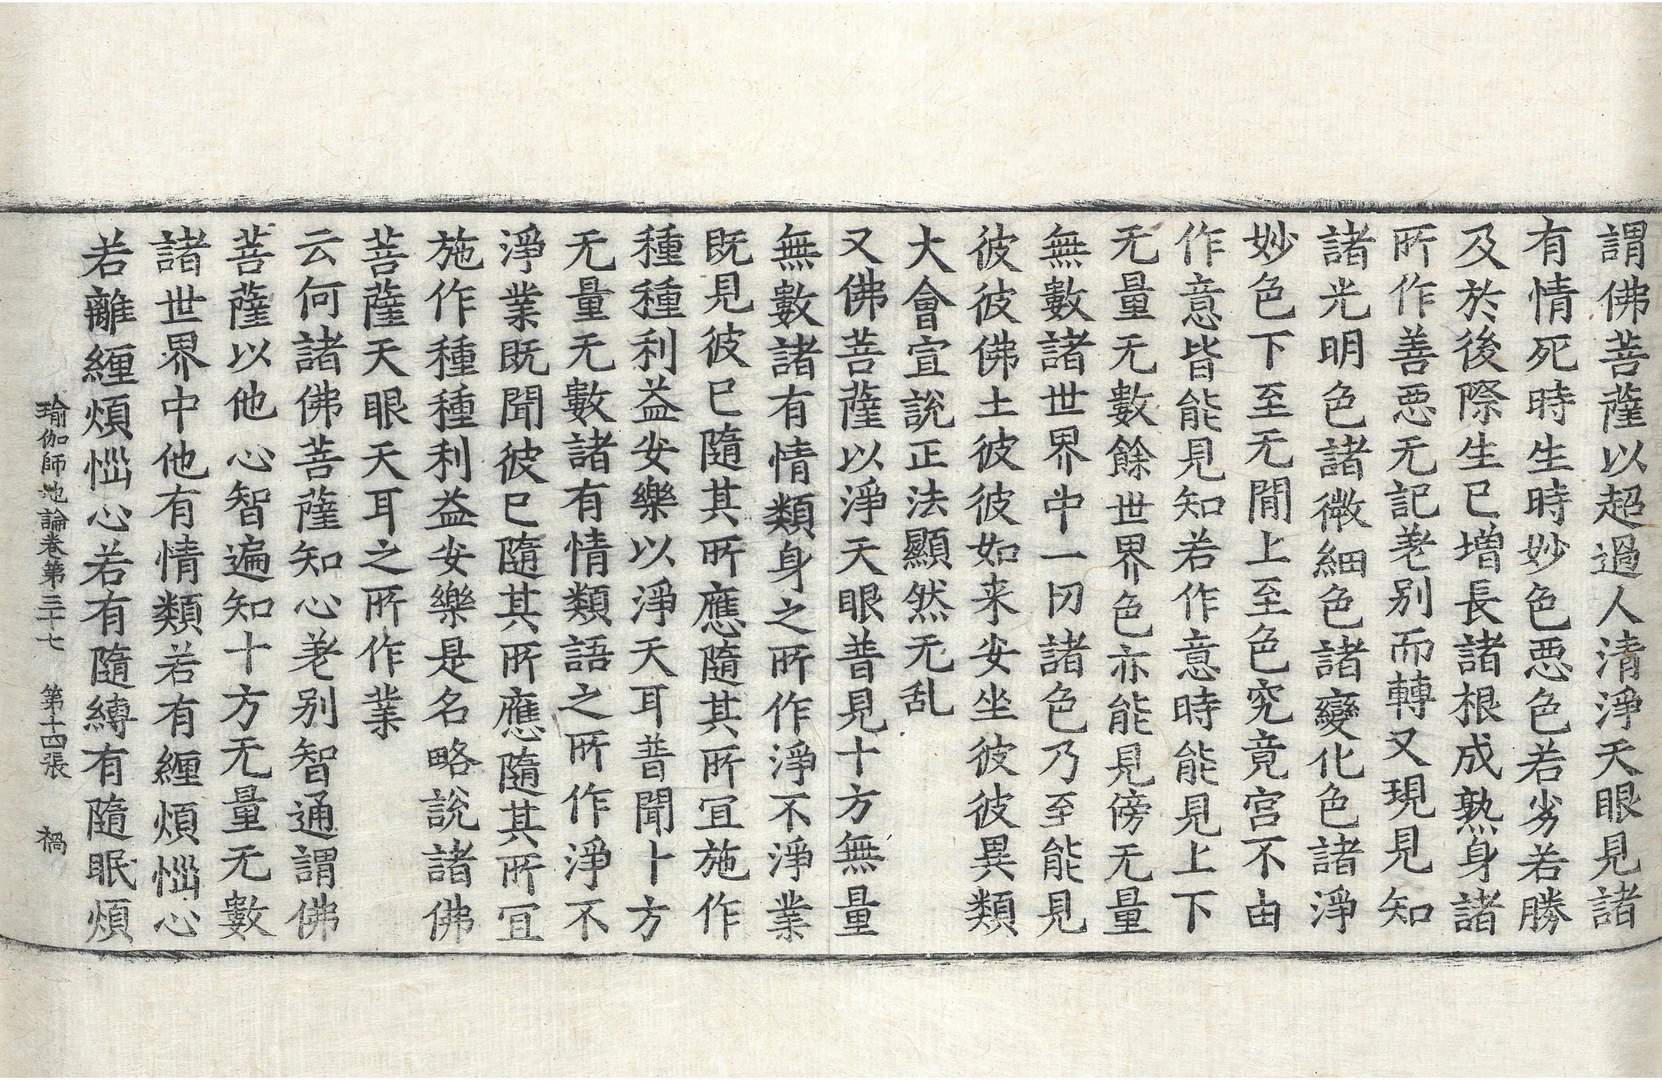 謂佛菩薩以超過人清淨天眼見諸
有情死時生時妙色惡色若劣若勝
及於後際生已增長諸根成熟身諸
所作善惡无記差别而轉又現見知
諸光明色諸微細色諸變化色諸淨
妙色下至无間上至色究竟宫不由
作意皆能見知若作意時能見上下
无量无數餘世界色亦能見傍无量
無數諸世界中一切諸色乃至能見
彼彼佛土彼彼如来安坐彼彼異類
大會宣說正法顯然无乱
又佛菩薩以淨天眼普見十方無量
無數諸有情類身之所作淨不淨業
既見彼已隨其所應隨其所冝施作
種種利益安樂以淨天耳普聞十方
无量无數諸有情類語之所作淨不
淨業既聞彼已隨其所應隨其所冝
施作種種利益安樂是名略說諸佛
菩薩天眼天耳之所作業
云何諸佛菩薩知心差别智通謂佛
菩薩以他心智遍知十方无量无數
諸世界中他有情類若有纏煩惱心
若離纏煩惱心若有隨縛有隨眠煩
瑜伽師地論卷第三十七 第十四張 禍